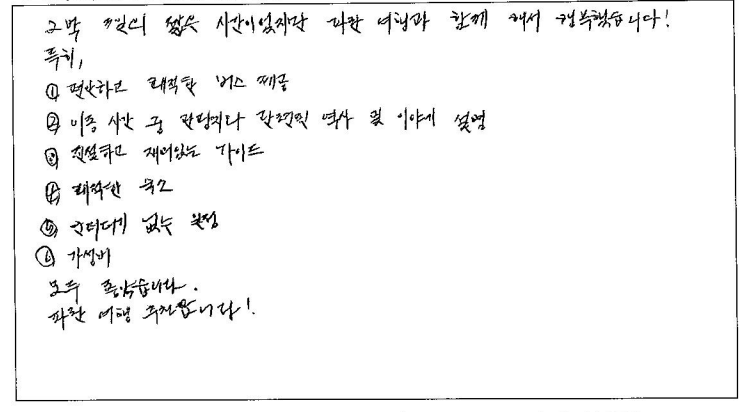 2박 3일의 짧은 시간이었지만 파란 여행과 함께 해서 행복했습니다!
특히,
① 편안하고 쾌적한 버스 제공
② 이동 시간 중 관광지마다 간략한 역사 및 이야기 설명
③ 친절하고 재미있는 가이드
④ 쾌적한 숙소
⑤ 군더더기 없는 일정
⑥ 가성비
모두 좋았습니다.
파란 여행 추천합니다!